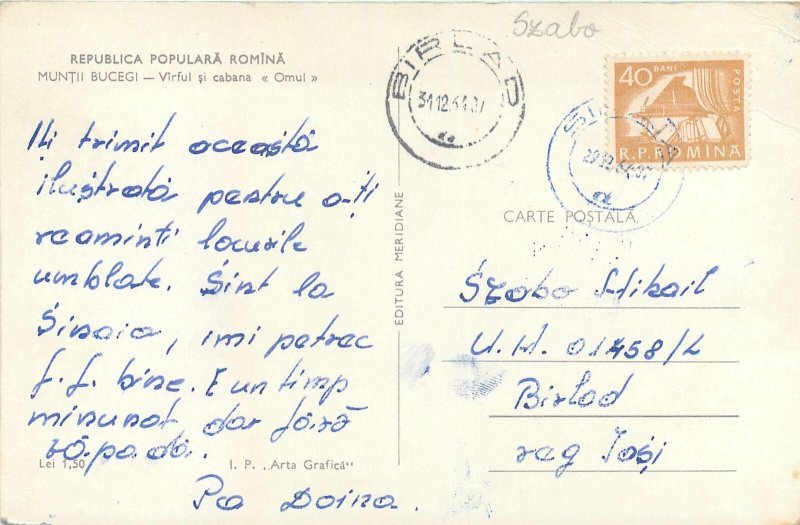 Szabo
REPUBLICA POPULARĂ ROMÎNĂ
MUNȚII BUCEGI — Vîrful și cabana « Omul »
Iți trimit această
ilustrată pentru a-ți
reaminti locurile
umblate. Sînt la
Sinaia, imi petrec
f. f. bine. E un timp
minunat dar fără
zăpadă.
Pa Doina.
Lei 1,50
I. P. „Arta Grafică"
EDITURA MERIDIANE
BIRLAD
31.12.64.07
40 BANI
POSTA
R.P.ROMINA
SINAIA
29.12.64.07
CARTE POȘTALĂ
Szabo Mihail
U.M. 01458/L
Birlad
reg Iași